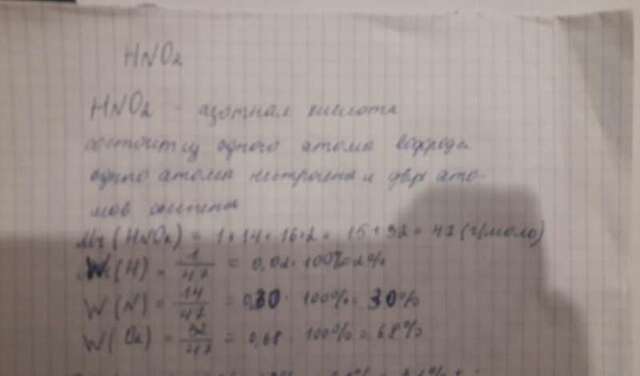 HNO2
HNO2 - азотная кислота
состоит из одного атома водорода
одного атома нитрогена и двух ато-
мов оксигена
Mr (HNO2) = 1+14+16·2 = 15+32 = 47 (г/моль)
W (H) = 1/47 = 0,02 · 100% = 2%
W (N) = 14/47 = 0,30 · 100% = 30%
W (O2) = 32/47 = 0,68 · 100% = 68%